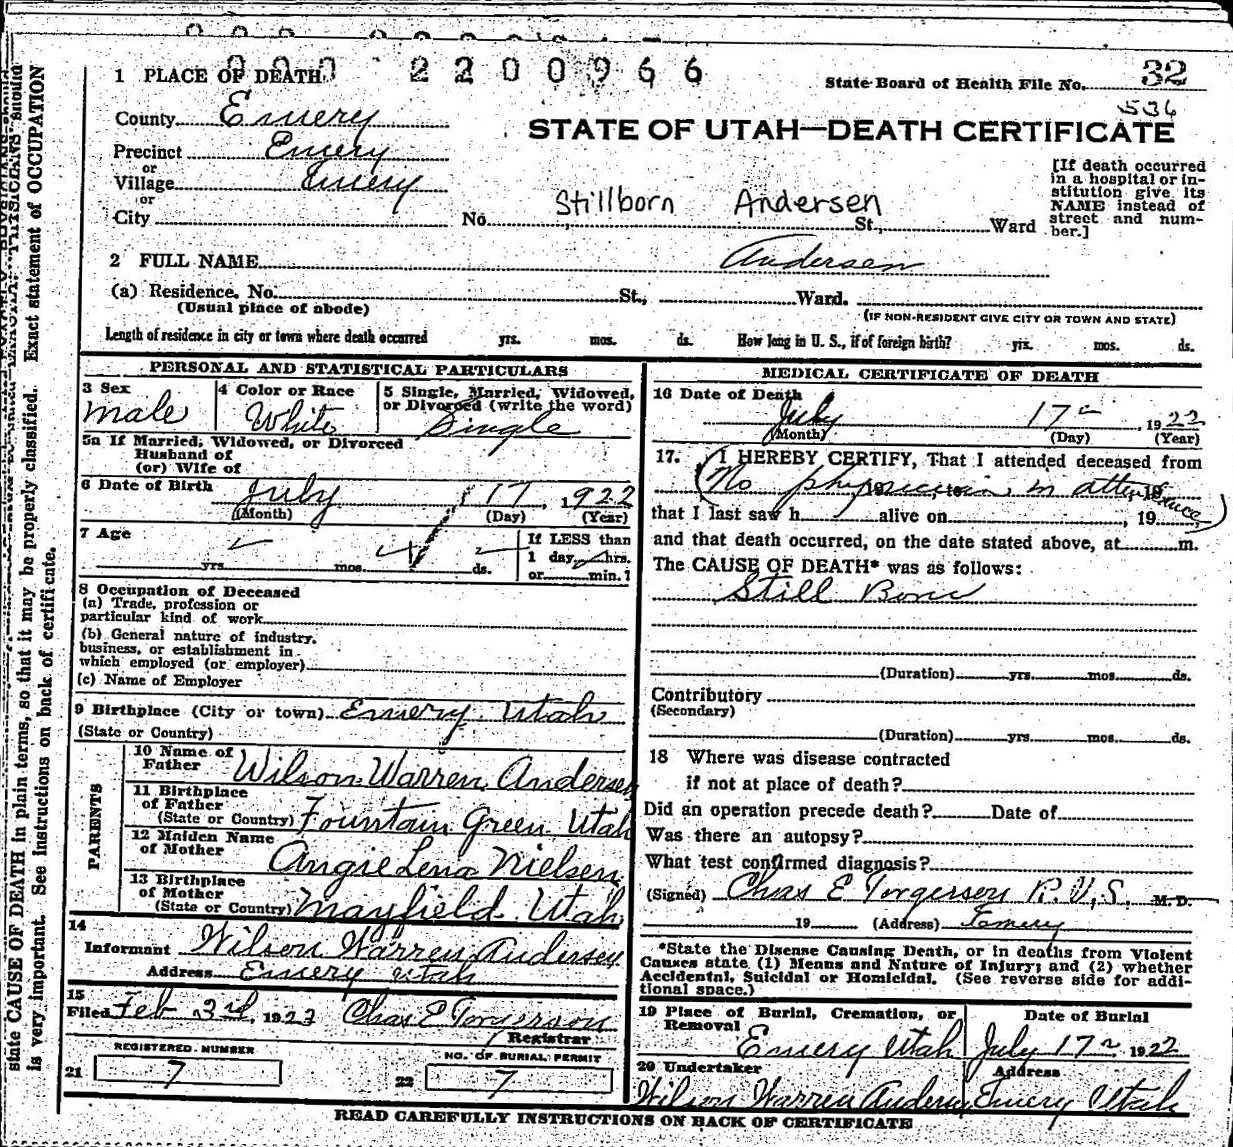 000 2200966
1 PLACE OF DEATH
State Board of Health File No. 32
536
County Emery
STATE OF UTAH—DEATH CERTIFICATE
Precinct Emery
or
Village Emery
or
City No. St. Ward
Stillborn Andersen
[If death occurred
in a hospital or in-
stitution give its
NAME instead of
street and num-
ber.]
2 FULL NAME Andersen
(a) Residence. No. St., Ward.
(Usual place of abode) (IF NON-RESIDENT GIVE CITY OR TOWN AND STATE)
Length of residence in city or town where death occurred yrs. mos. ds. How long in U. S., if of foreign birth? yrs. mos. ds.
PERSONAL AND STATISTICAL PARTICULARS
3 Sex 4 Color or Race 5 Single, Married, Widowed,
or Divorced (write the word)
male White Single
5a If Married, Widowed, or Divorced
Husband of
(or) Wife of
6 Date of Birth July 17, 1922
(Month) (Day) (Year)
7 Age
yrs. mos. ds.
If LESS than
1 day, hrs.
or min.?
8 Occupation of Deceased
(a) Trade, profession or
particular kind of work
(b) General nature of industry,
business, or establishment in
which employed (or employer)
(c) Name of Employer
9 Birthplace (City or town) Emery Utah
(State or Country)
PARENTS
10 Name of
Father Wilson Warren Andersen
11 Birthplace
of Father
(State or Country) Fountain Green Utah
12 Maiden Name
of Mother Angie Lena Nielsen
13 Birthplace
of Mother
(State or Country) Mayfield Utah
14
Informant Wilson Warren Andersen
Address Emery Utah
15
Filed Feb 3rd, 1923 Chas E Torgerson
Registrar
REGISTERED NUMBER
21 7
NO. OF BURIAL PERMIT
22 7
MEDICAL CERTIFICATE OF DEATH
16 Date of Death
July 17, 1922
(Month) (Day) (Year)
17. I HEREBY CERTIFY, That I attended deceased from
(No physician in attendance)
that I last saw h alive on , 19
and that death occurred, on the date stated above, at m.
The CAUSE OF DEATH* was as follows:
Still Born
(Duration) yrs. mos. ds.
Contributory
(Secondary)
(Duration) yrs. mos. ds.
18 Where was disease contracted
if not at place of death?
Did an operation precede death? Date of
Was there an autopsy?
What test confirmed diagnosis?
(Signed) Chas E Torgerson R.V.S. M.D.
19 (Address) Emery
*State the Disease Causing Death, or in deaths from Violent
Causes state (1) Means and Nature of Injury; and (2) whether
Accidental, Suicidal or Homicidal. (See reverse side for addi-
tional space.)
19 Place of Burial, Cremation, or
Removal
Emery Utah
Date of Burial
July 17 1922
20 Undertaker
Wilson Warren Andersen
Address
Emery Utah
READ CAREFULLY INSTRUCTIONS ON BACK OF CERTIFICATE
state CAUSE OF DEATH in plain terms, so that it may be properly classified. Exact statement of OCCUPATION
is very important. See instructions on back of certificate.